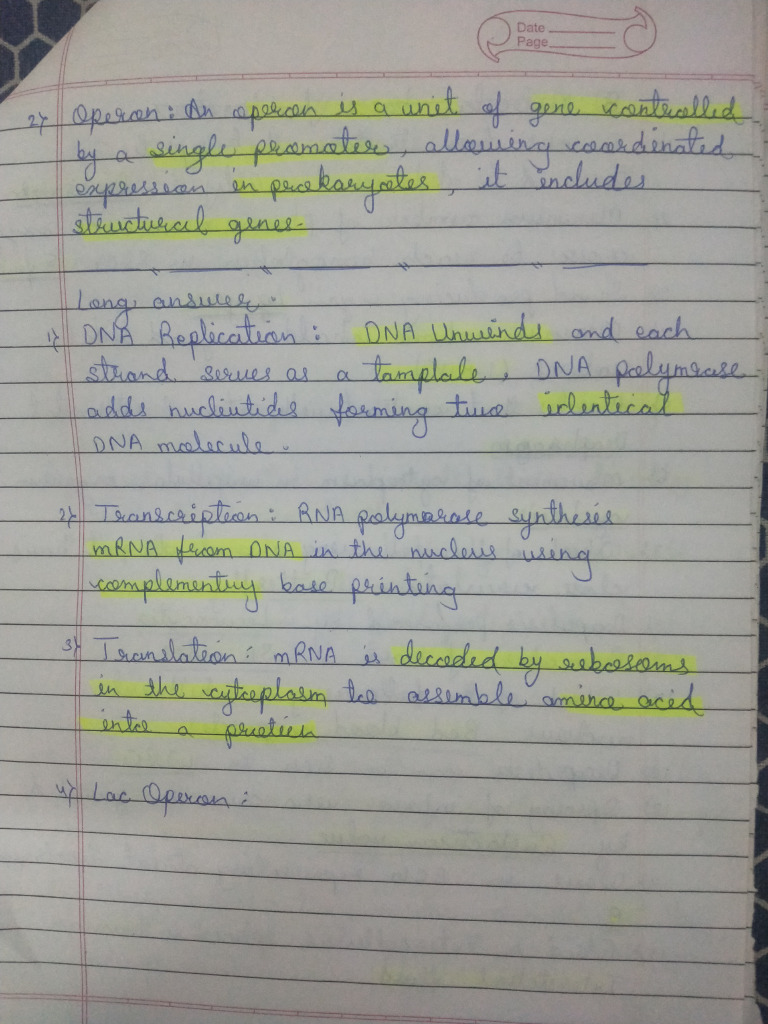 Date
Page
2) Operon: An operon is a unit of gene controlled
by a single promoter, allowing coordinated
expression in prokaryotes, it includes
structural genes.
Long answer.
1) DNA Replication: DNA Unwinds and each
strand serves as a tamplate. DNA polymrase
adds nucleutides forming two identical
DNA molecule.
2) Transcription: RNA polymarase synthesis
mRNA from DNA in the nucleus using
complementuy base printing
3) Translation: mRNA is decoded by rebosoms
in the cytoplasm to assemble amino acid
into a protien
4) Lac Operon: